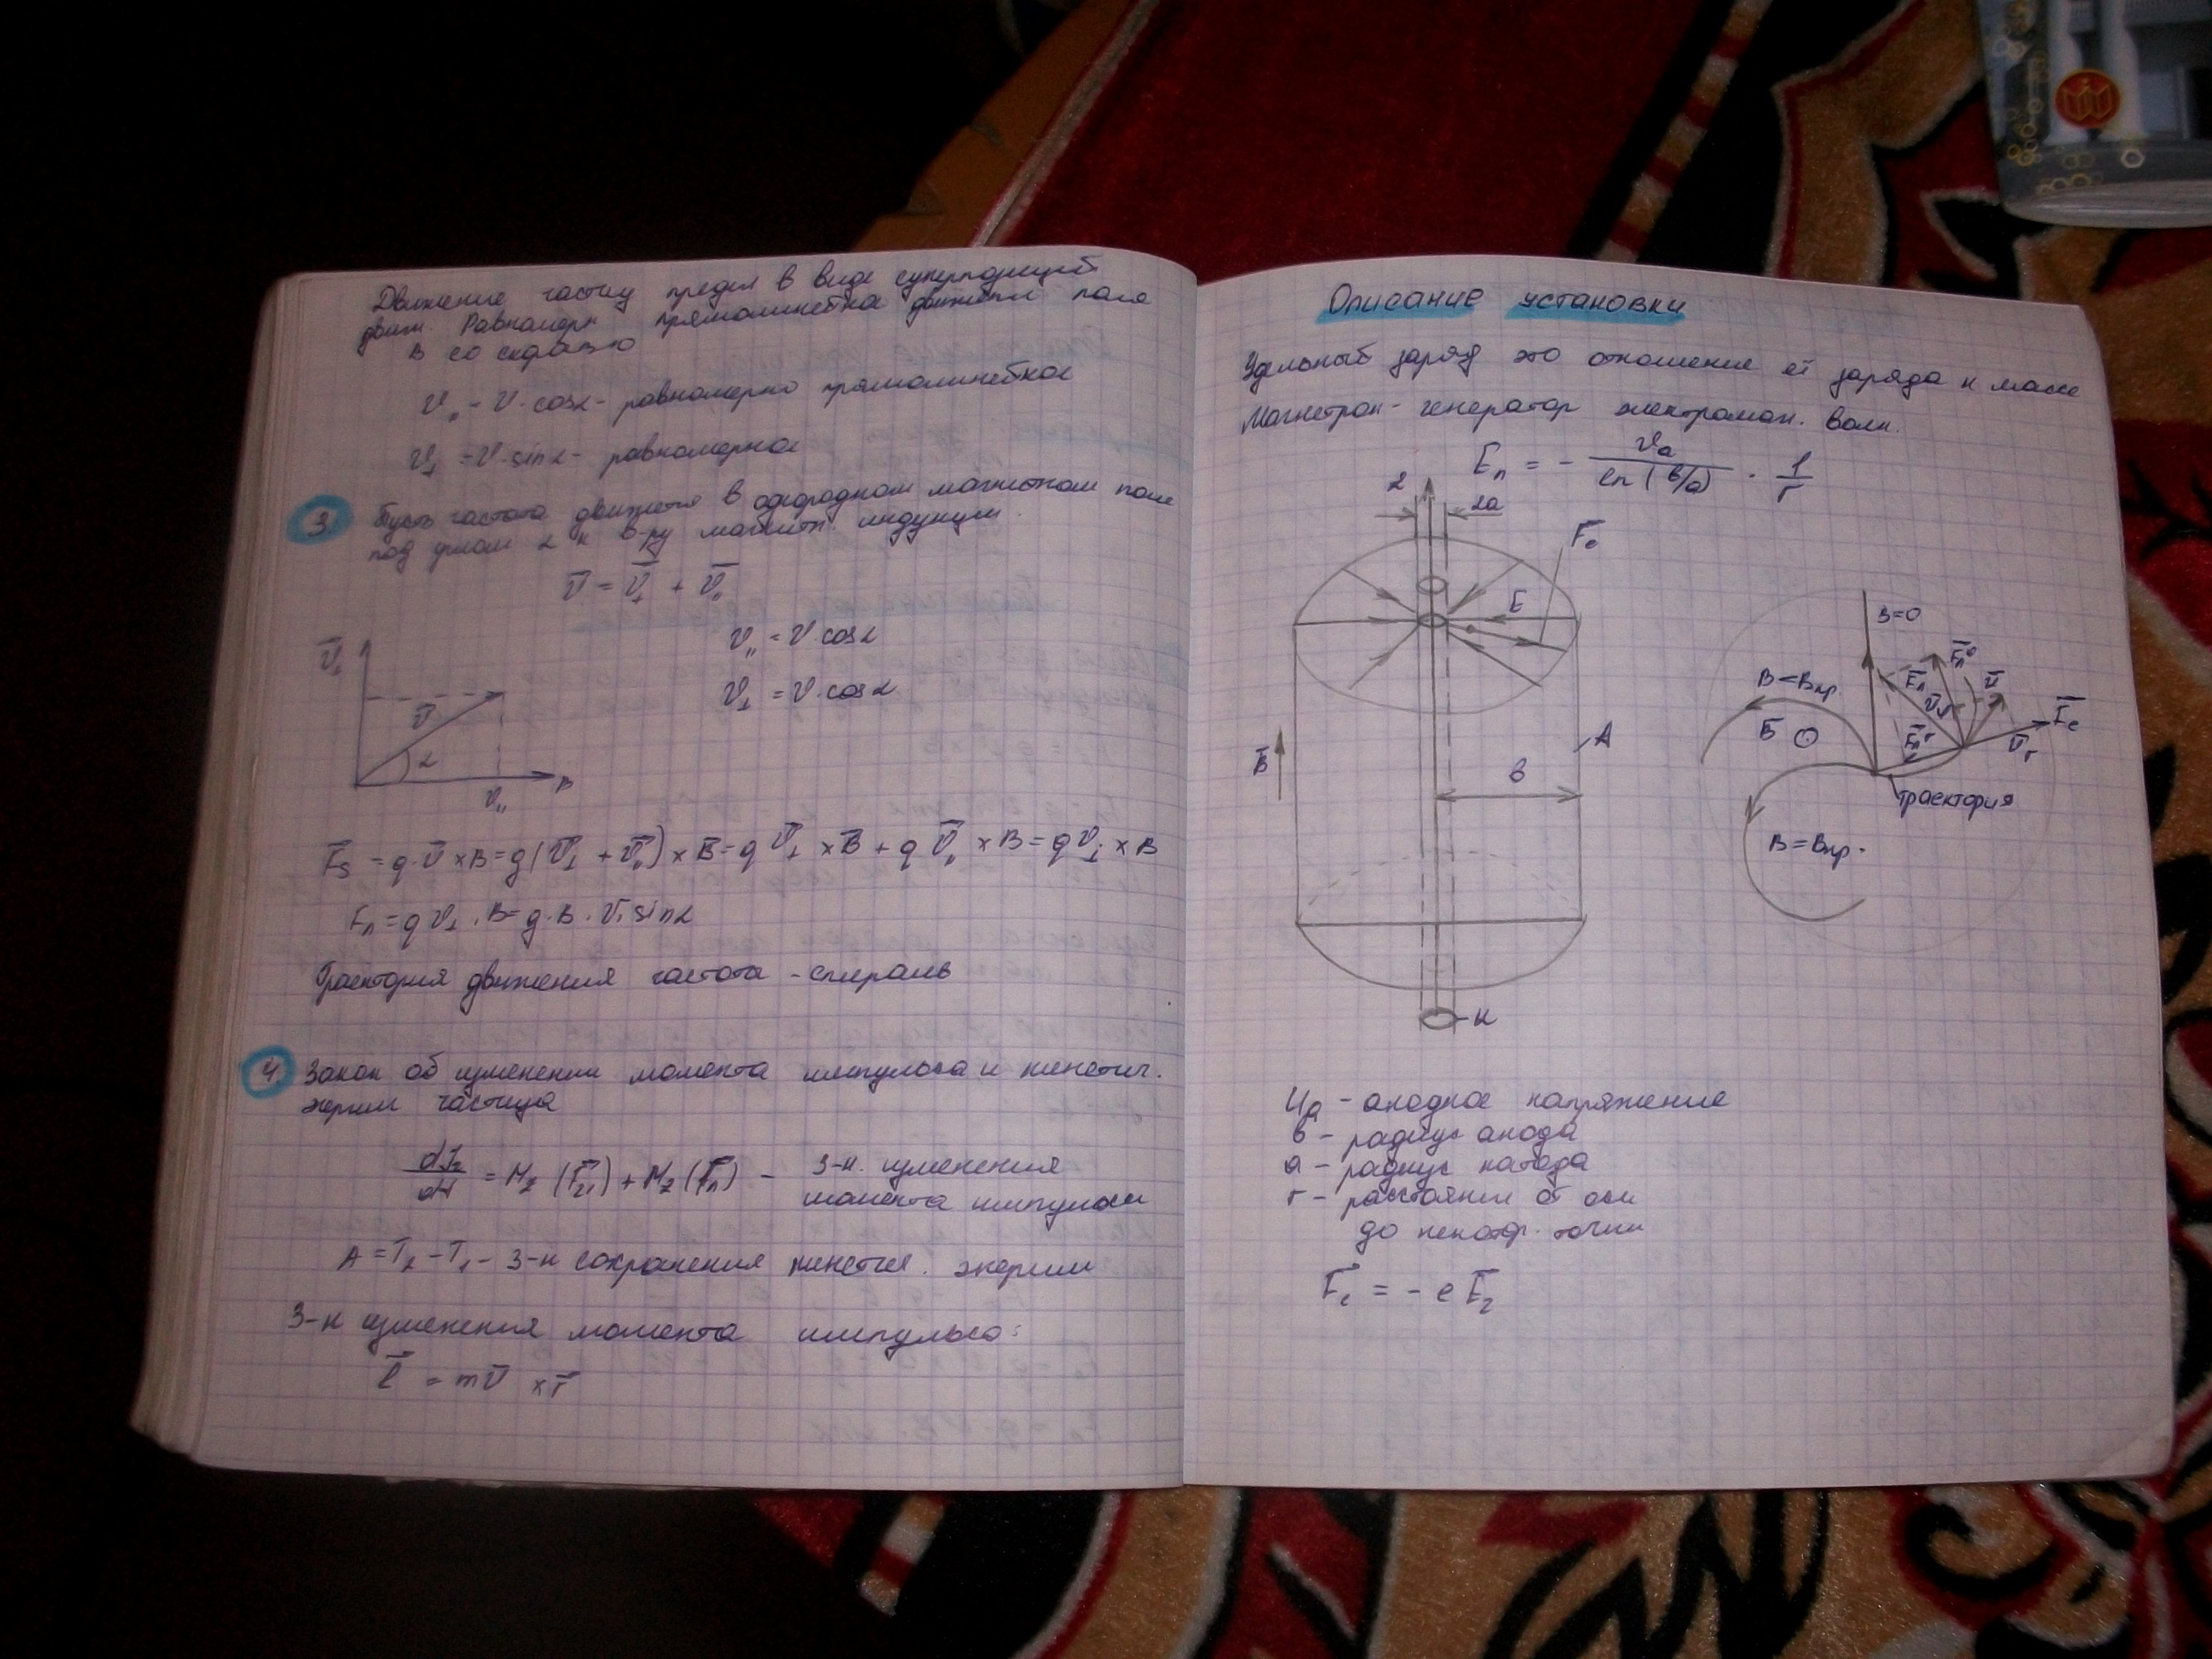 Движение частиц предст в виде суперпозиций
движ. Равномерн прямолинейна движения поля
В со скоростью
V₍₎ = V · cosα - равномерно прямолинейное
V⊥ = V · sinα - равномерное
3. Пусть частота движется в однородном магнитном поле
под углом α к в-ру магнитн. индукции.
V̄ = V̄⊥ + V̄₍₎
V₍₎ = V · cosα
V⊥ = V · cosα
V̄
α
V₍₎
B
= q · V̄ × B = q(V̄⊥ + V̄₍₎) × B̄ = q V̄⊥ × B̄ + q V̄₍₎ × B = q V⊥ × B
Fл = q V⊥ · B = q · B · V · sinα
Траектория движения частота - спираль
4. Закон об изменении момента импульса и кинетич.
энергии частицы
= Mz (F̄эл) + Mz (F̄л) - З-н. изменения
момента импульса
A = T₂ - T₁ - З-н сохранения кинетич. энергии
З-н изменения момента импульса:
l̄ = mV̄ × r̄
Описание установки
Удельный заряд это отношение её заряда к массе
Магнетрон - генератор электроман. волн.
Er = - Ua / ln(в/a) · 1/r
z
2a
F̄e
E
B̄
A
в
K
B=0
B<Bкр.
Б̄
V̄
F̄e
V̄r
траектория
B=Bкр.
Ua - анодное напряжение
в - радиус анода
a - радиус катода
r - расстояние от оси
до некотор. точки
F̄e = - e Ēr